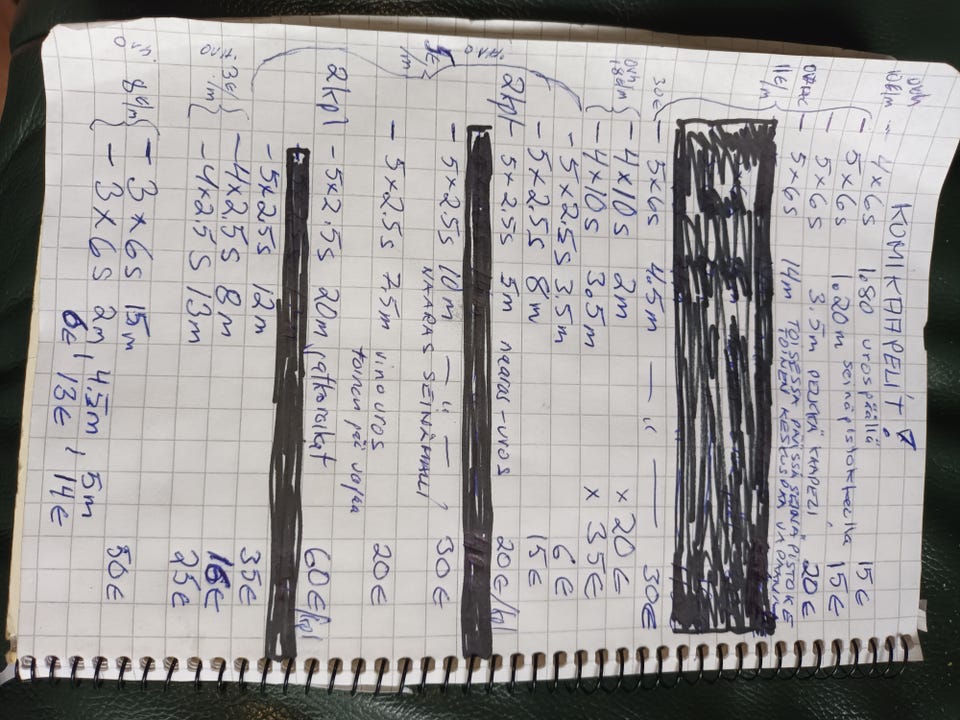 KOMIKAAPELIT!
ovh
10€/m - 4×6s 1.80 urospäällä 15€
- 5×6s 1.20m seinäpistokkeella 15€
- 5×6s 3.5m pelkkä kaapeli 20€
11€/m - 5×6s 14m TOISESSA PÄÄSSÄ SEINÄ PISTOKE
TOINEN
30€ - 5×6s 4.5m — " — 30€
ovh
18€/m - 4×10s 2m × 20€
- 4×10s 3.5m × 35€
- 5×2.5s 3.5m 6€
- 5×2.5s 8m 15€
2kpl - 5×2.5s 5m naaras-uros 20€/kpl
- 5×2.5s 10m — " — 30€
NAARAS SEINÄMALLI
- 5×2.5s 7.5m vino uros 20€
toinen pää vapaa
2kpl - 5×2.5s 20m jatkoroikat 60€/kpl
- 5×2.5s 12m 35€
3€/m - 4×2.5s 8m 16€
- 4×2.5s 13m 25€
8€/m - 3×6s 15m 50€
- 3×6s 2m, 4.5m, 5m
6€, 13€, 14€